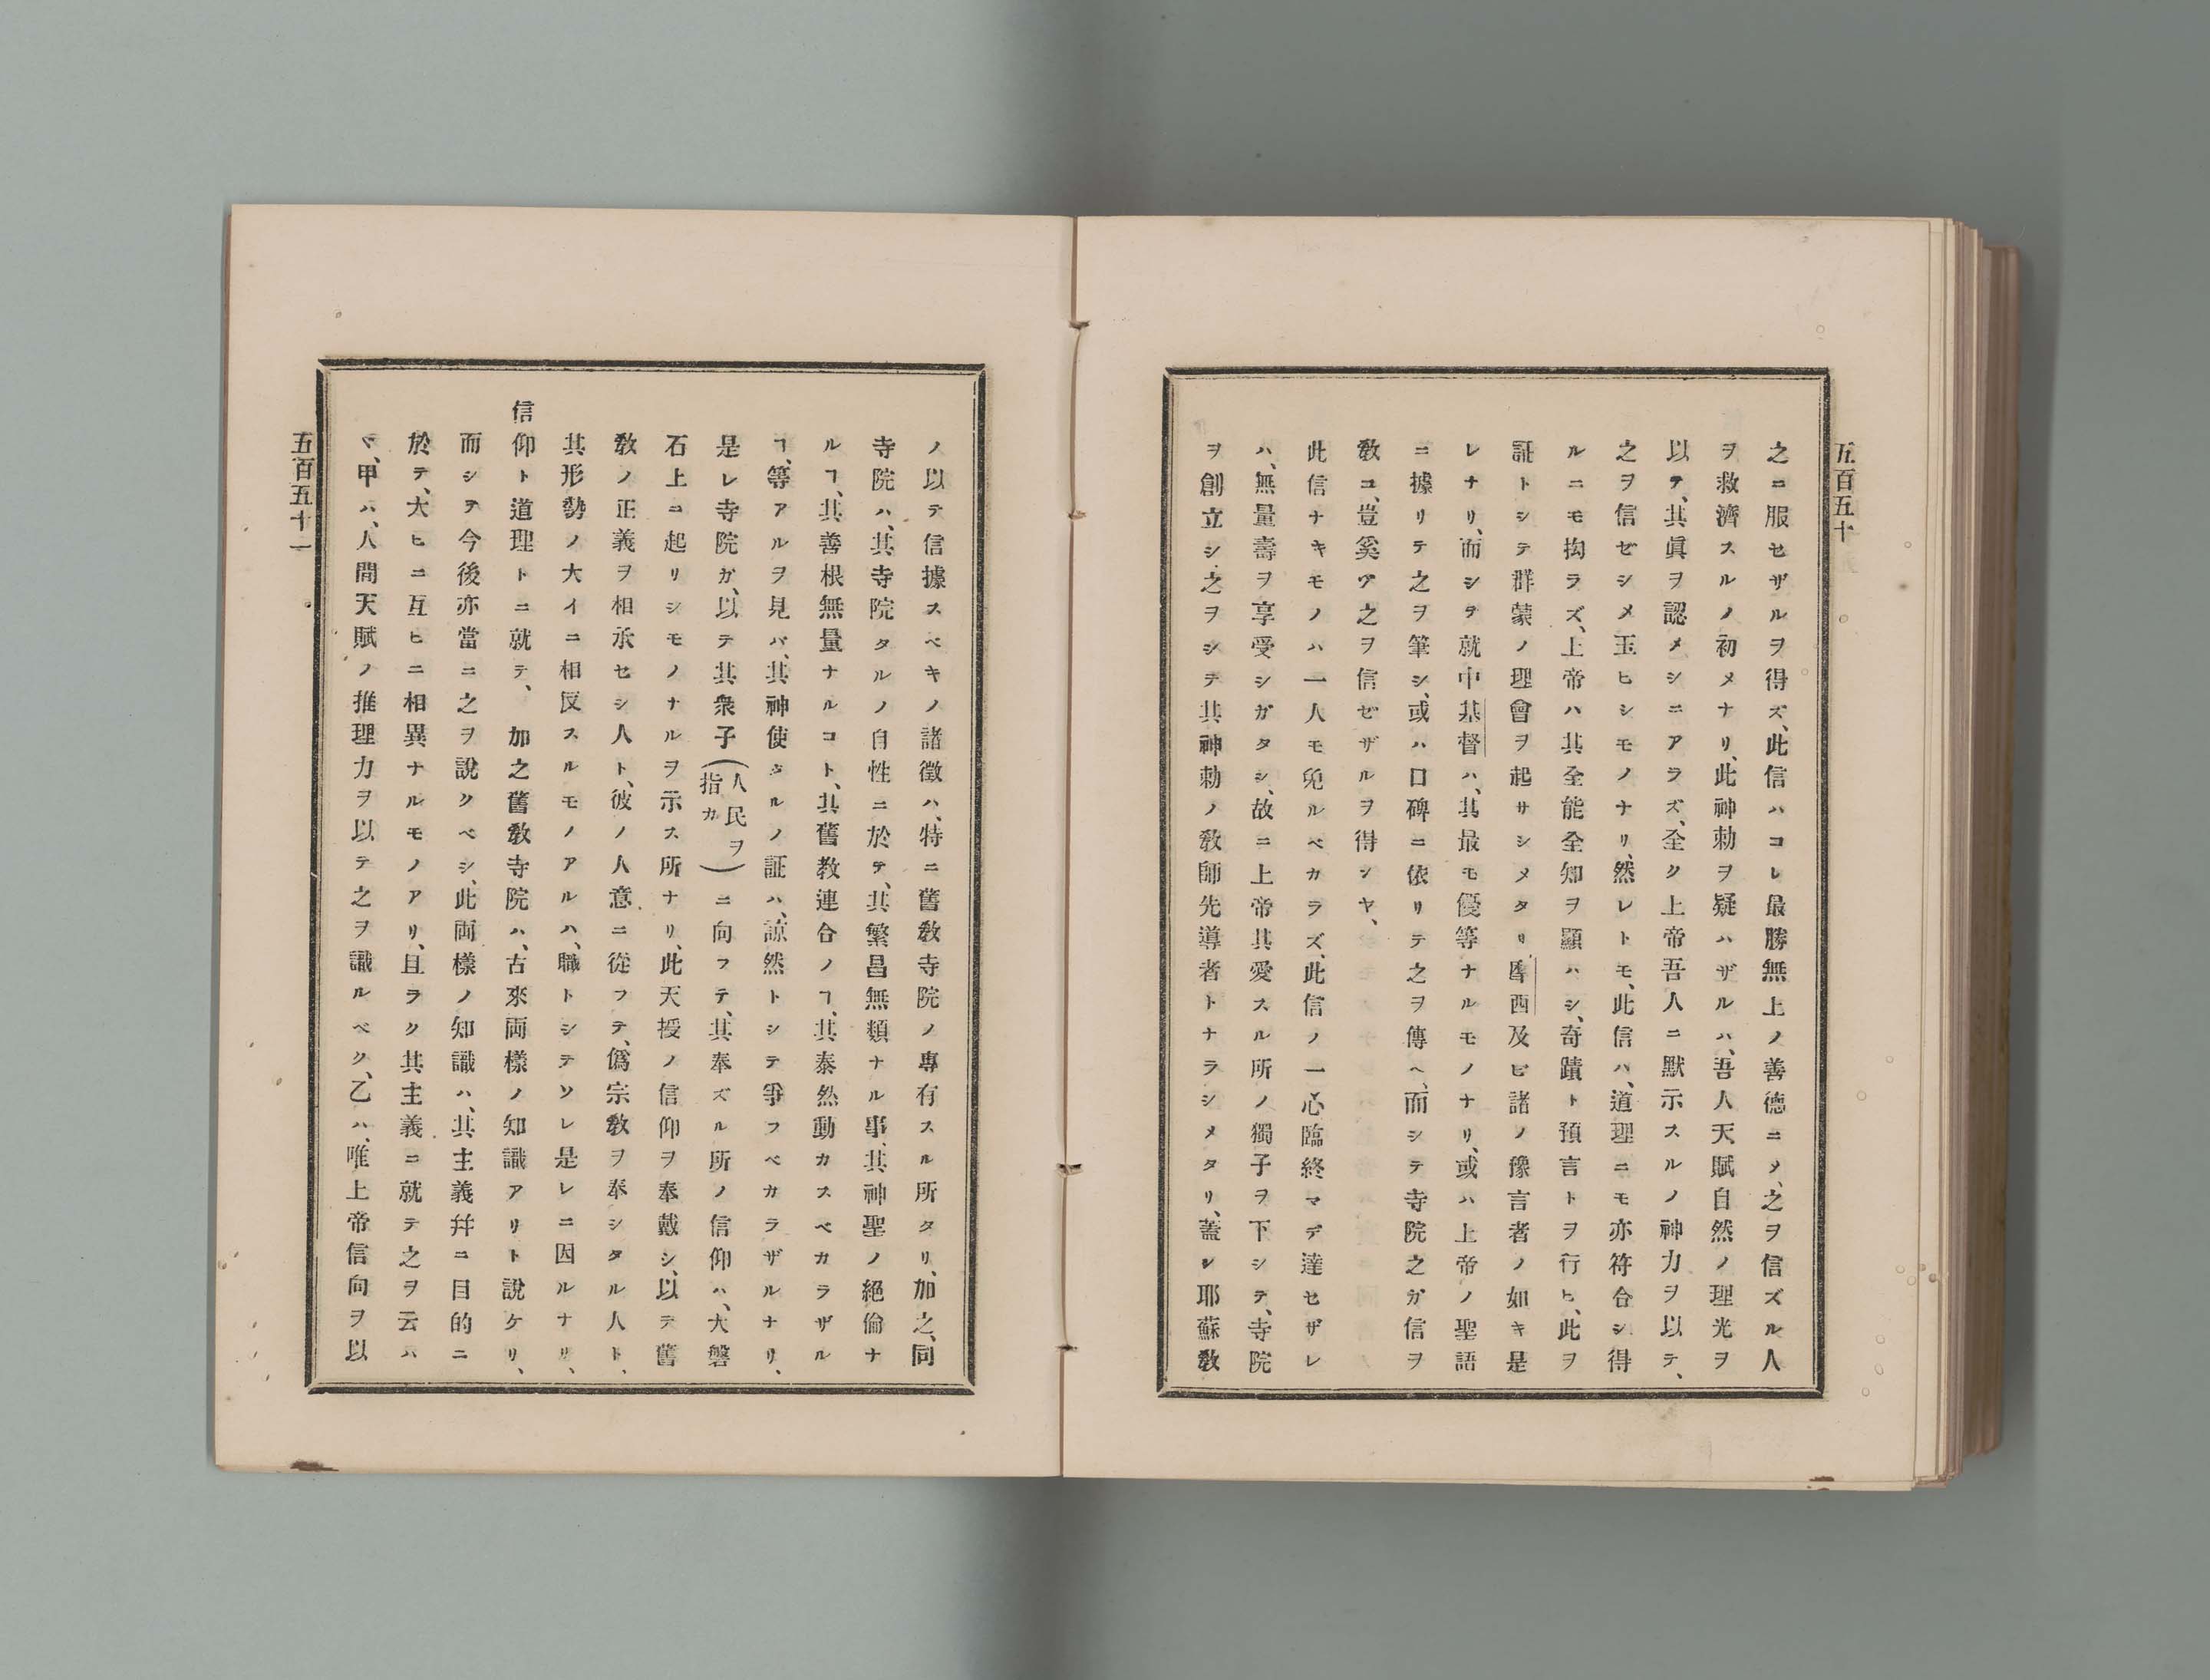 五百五十
之ニ服セザルヲ得ズ、此信ハコレ最勝無上ノ善徳ニ〆、之ヲ信ズル人
ヲ救濟スルノ初メナリ、此神勅ヲ疑ハザルハ、吾人天賦自然ノ理光ヲ
以テ、其眞ヲ認メシニアラズ、全ク上帝吾人ニ默示スルノ神力ヲ以テ、
之ヲ信ゼシメ玉ヒシモノナリ、然レトモ、此信ハ、道理ニモ亦符合シ得
ルニモ拘ラズ、上帝ハ其全能全知ヲ顯ハシ、奇蹟ト預言トヲ行ヒ、此ヲ
証トシテ群蒙ノ理會ヲ起サシメタリ、摩西及ビ諸ノ豫言者ノ如キ是
レナリ、而シテ就中基督ハ、其最モ優等ナルモノナリ、或ハ上帝ノ聖語
ニ據リテ之ヲ筆シ、或ハ口碑ニ依リテ之ヲ傳ヘ、而シテ寺院之ガ信ヲ
敎ユ、豈奚ゾ之ヲ信ゼザルヲ得ンヤ、
此信ナキモノハ一人モ免ルベカラズ、此信ノ一心臨終マデ達セザレ
ハ、無量壽ヲ享受シガタシ、故ニ上帝其愛スル所ノ獨子ヲ下シテ、寺院
ヲ創立シ之ヲシテ其神勅ノ敎師先導者トナラシメタリ、蓋シ耶蘇敎
ノ以テ信據スベキノ諸徵ハ、特ニ舊敎寺院ノ專有スル所タリ、加之、同
寺院ハ、其寺院タルノ自性ニ於テ、其繁昌無類ナル事、其神聖ノ絕倫ナ
ルヿ、其善根無量ナルコト、其舊教連合ノヿ、其泰然動カスベカラザル
ヿ、等アルヲ見バ、其神使タルノ証ハ、諒然トシテ爭フベカラザルナリ、
是レ寺院ガ、以テ其衆子(人民ヲ指カ)ニ向フテ、其奉ズル所ノ信仰ハ、大磐
石上ニ起リシモノナルヲ示ス所ナリ、此天授ノ信仰ヲ奉戴シ、以テ舊
敎ノ正義ヲ相承セシ人ト、彼ノ人意ニ從フテ、僞宗敎ヲ奉シタル人ト、
其形勢ノ大イニ相反スルモノアルハ、職トシテソレ是レニ因ルナリ、
信仰ト道理トニ就テ、 加之舊敎寺院ハ、古來両樣ノ知識アリト說ケリ、
而シヲ今後亦當ニ之ヲ說クベシ、此両樣ノ知識ハ、其主義幷ニ目的ニ
於テ、大ヒニ互ヒニ相異ナルモノアリ、且ラク其主義ニ就テ之ヲ云ハ
ヾ、甲ハ、人間天賦ノ推理力ヲ以テ之ヲ識ルベク、乙ハ、唯上帝信向ヲ以
五百五十一